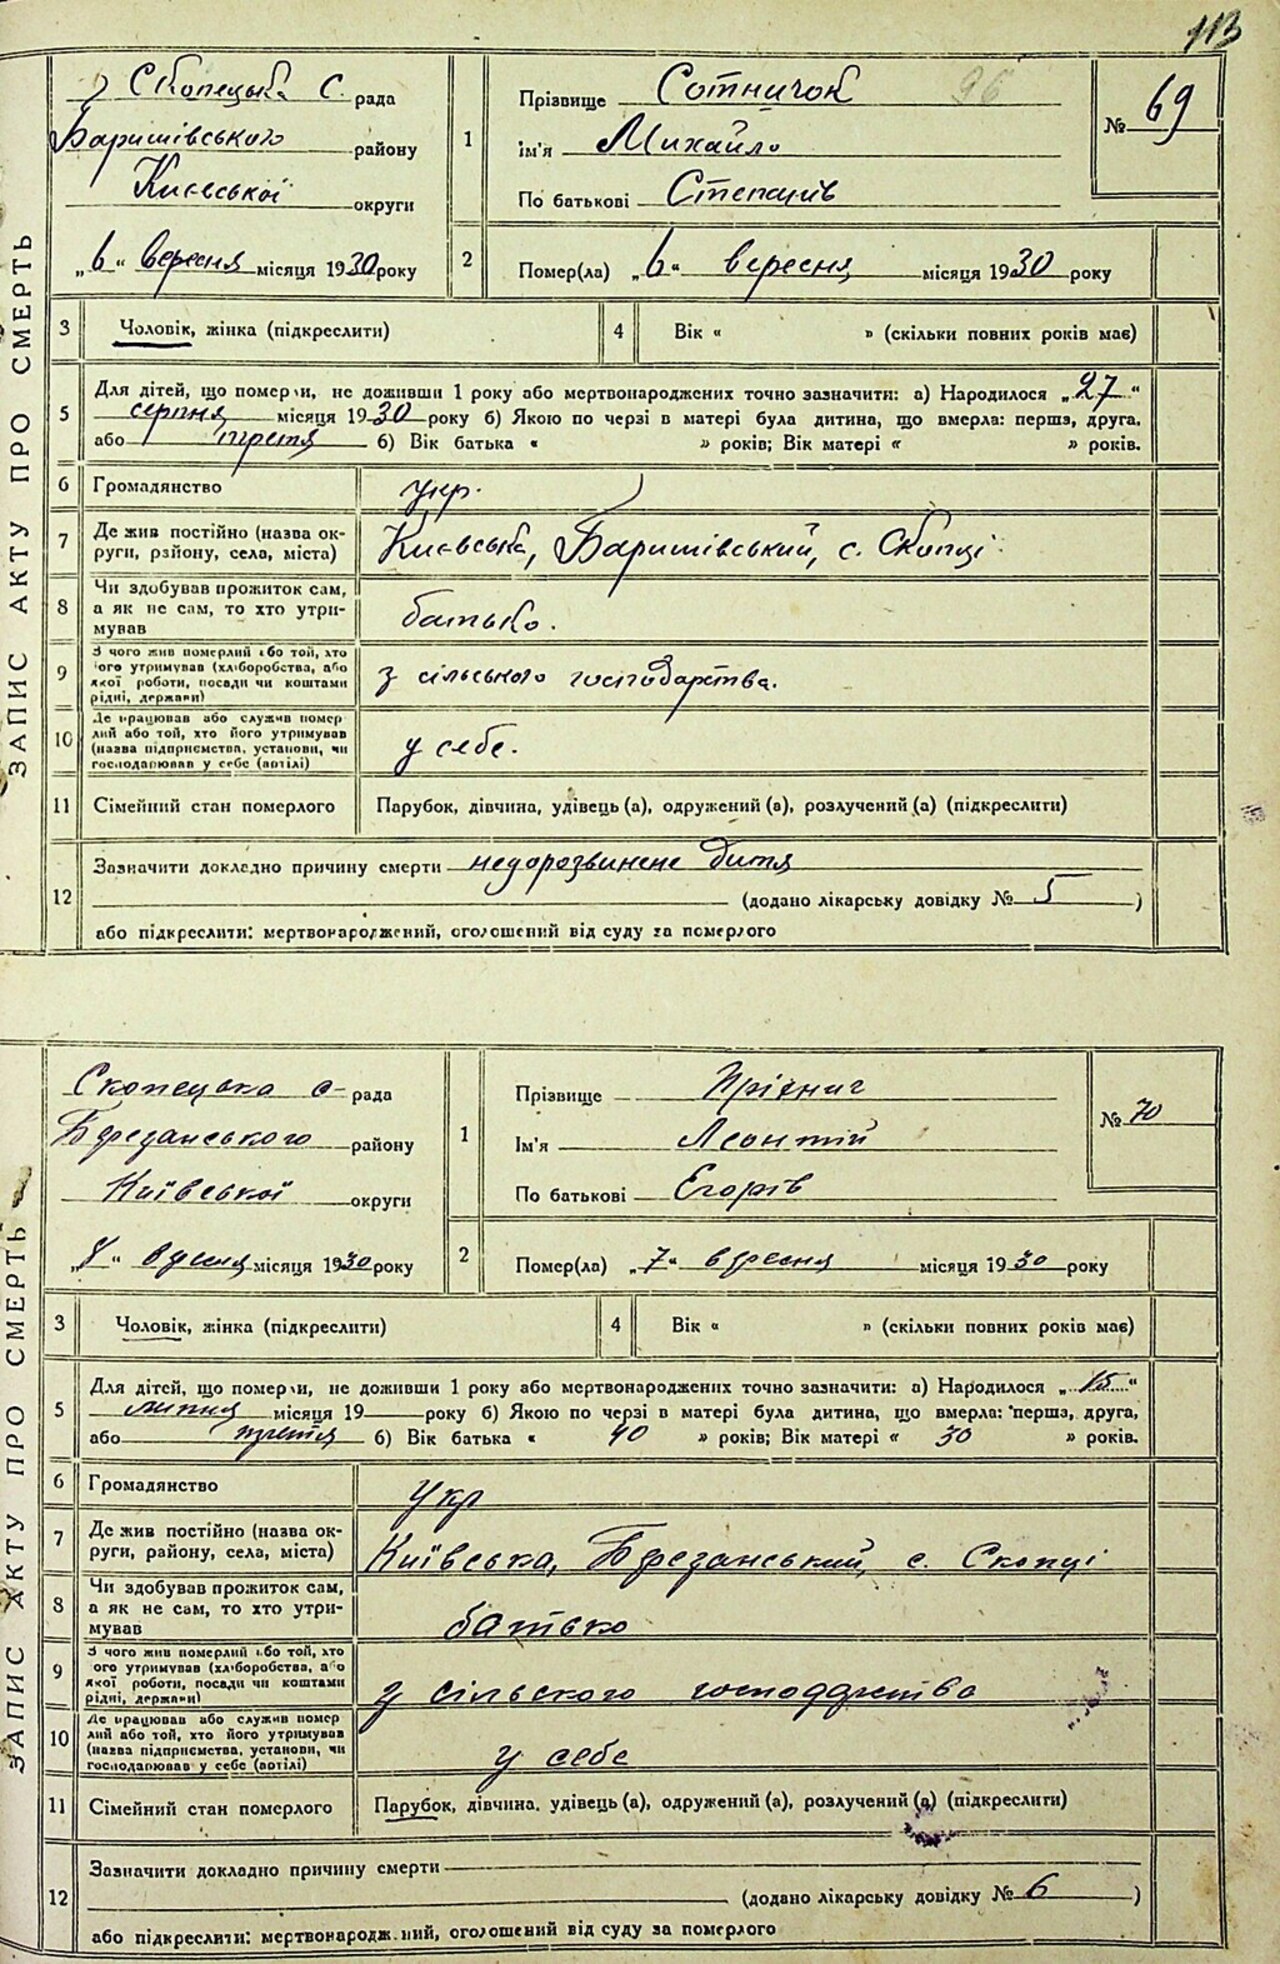 113
ЗАПИС АКТУ ПРО СМЕРТЬ
Скопецька с. рада
Баришівського району
Києвської округи
„6“ вересня місяця 1930 року
1 Прізвище Сотничок 96
Ім'я Михайло
По батькові Степанів
№ 69
2 Помер(ла) „6“ вересня місяця 1930 року
3 Чоловік, жінка (підкреслити)
4 Вік « » (скільки повних років має)
5 Для дітей, що померли, не доживши 1 року або мертвонароджених точно зазначити: а) Народилося „27“
серпня місяця 1930 року б) Якою по черзі в матері була дитина, що вмерла: перша, друга,
або третя б) Вік батька « » років; Вік матері « » років.
6 Громадянство укр.
7 Де жив постійно (назва ок-
руги, району, села, міста) Києвська, Баришівський, с. Скопці.
8 Чи здобував прожиток сам,
а як не сам, то хто утри-
мував батько.
9 З чого жив померлий або той, хто
ого утримував (хліборобства, або
якої роботи, посади чи коштами
рідні, держави) з сільського господарства.
10 Де працював або служив помер
лий або той, хто його утримував
(назва підприємства, установи, чи
господарював у себе (артілі) у себе.
11 Сімейний стан померлого Парубок, дівчина, удівець (а), одружений (а), розлучений (а) (підкреслити)
12 Зазначити докладно причину смерти недорозвинене дитя
(додано лікарську довідку № 5 )
або підкреслити: мертвонароджений, оголошений від суду за померлого
ЗАПИС АКТУ ПРО СМЕРТЬ
Скопецька с- рада
Березанського району
Київської округи
„ “ місяця 1930 року
1 Прізвище
Ім'я Леонтій
По батькові Єгорів
№ 70
2 Помер(ла) „7“ вересня місяця 1930 року
3 Чоловік, жінка (підкреслити)
4 Вік « » (скільки повних років має)
5 Для дітей, що померли, не доживши 1 року або мертвонароджених точно зазначити: а) Народилося „15“
липня місяця 19 року б) Якою по черзі в матері була дитина, що вмерла: перша, друга,
або третя б) Вік батька « 40 » років; Вік матері « 30 » років.
6 Громадянство укр
7 Де жив постійно (назва ок-
руги, району, села, міста) Київська, Березанський, с. Скопці
8 Чи здобував прожиток сам,
а як не сам, то хто утри-
мував батько
9 З чого жив померлий або той, хто
ого утримував (хліборобства, або
якої роботи, посади чи коштами
рідні, держави) з сільского господарства
10 Де працював або служив помер
лий або той, хто його утримував
(назва підприємства, установи, чи
господарював у себе (артілі) у себе
11 Сімейний стан померлого Парубок, дівчина, удівець (а), одружений (а), розлучений (а) (підкреслити)
12 Зазначити докладно причину смерти
(додано лікарську довідку № 6 )
або підкреслити: мертвонароджений, оголошений від суду за померлого